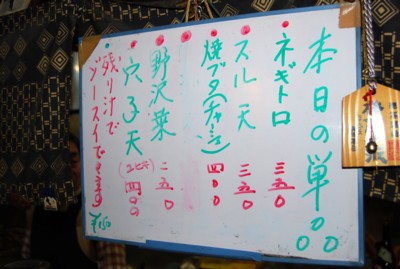 本日の単品
ネギトロ 三五〇
スル天 三五〇
焼ブタ(チャーシュー) 四〇〇
野沢菜 二五〇
穴子天 (2ピキ) 四〇〇
残り汁で
ゾースイできます